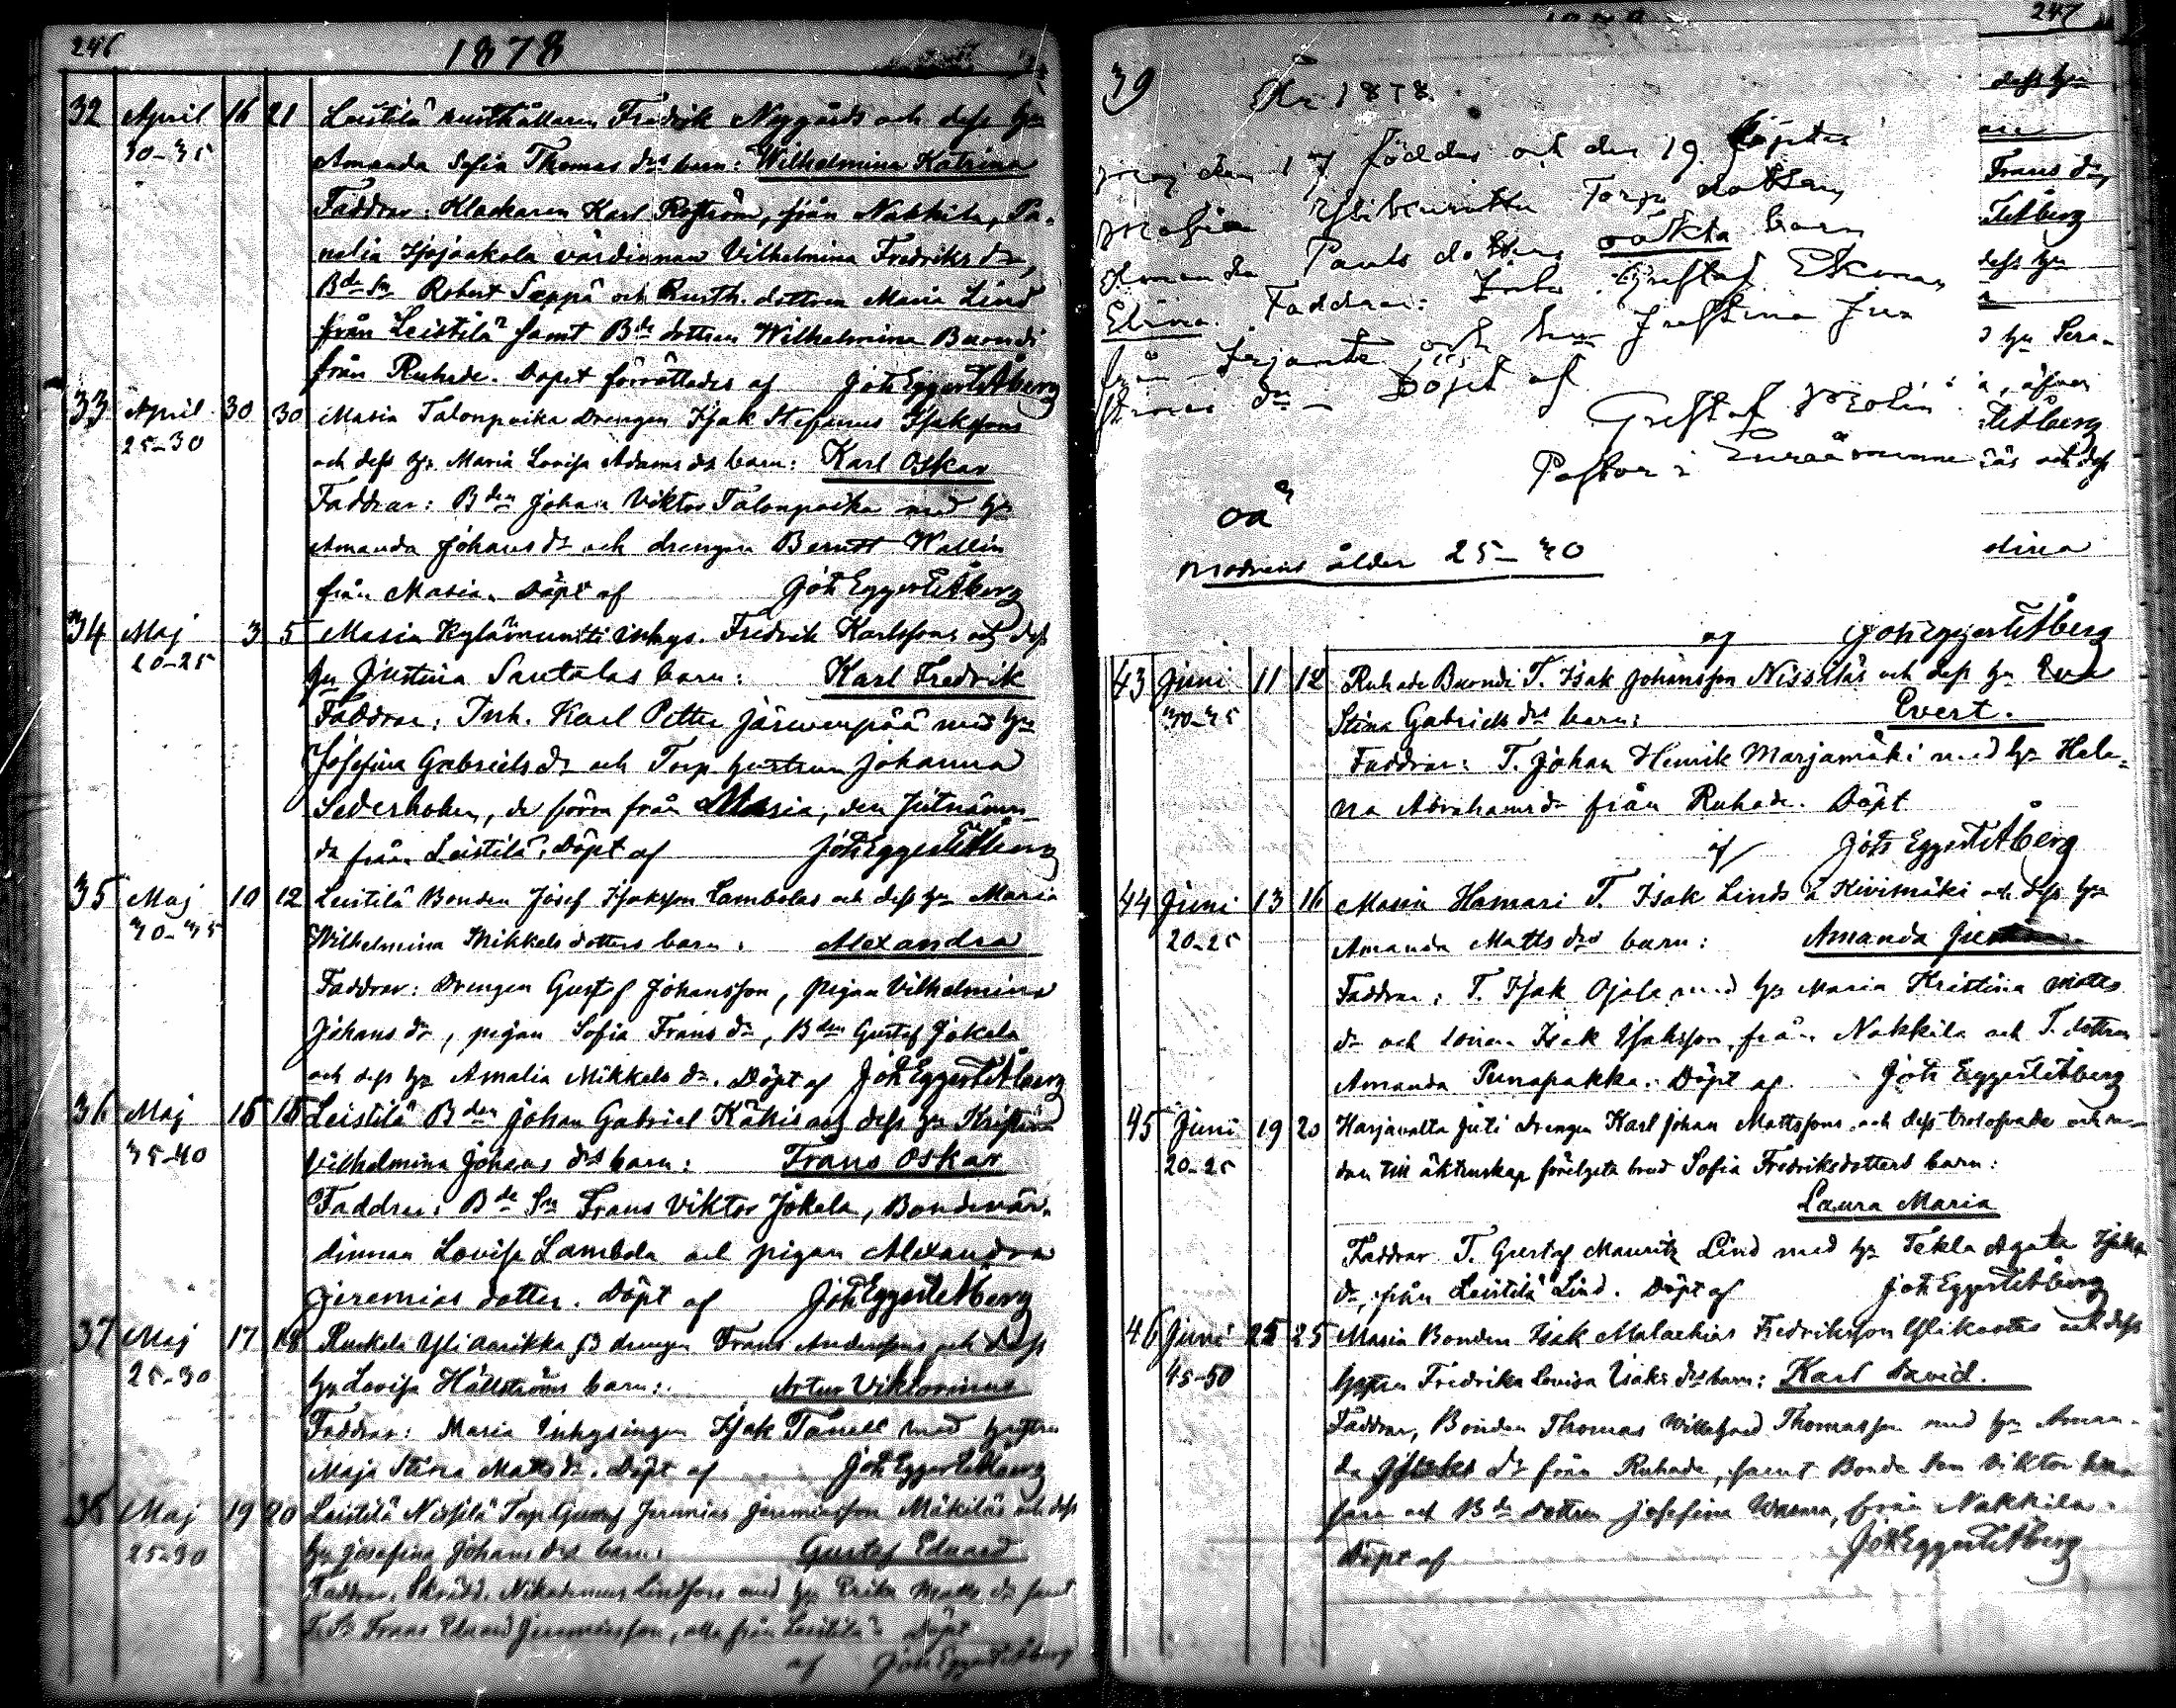 246
1878
32 April 16 21 Leistilä rusthållaren Fredrik Nygårds och dess hu
30-35 Amanda Sofia Thomas drs barn: Wilhelmina Katrina
Faddrar: Klockaren Karl Roström, från Nakkila, Ta-
nalia Isojaakola värdinnan Vilhelmina Fredriks dr,
Bde Sn Robert Seppä och Rusth. dottren Maria Lind
från Leistilä samt Bde dottren Wilhelmina Buondi
från Ruhade. Dopet förrättades af Joh Eggert Etåberg
33 April 30 30 Masia Talonpoika Drengen Isak Stefanus Isakssons
25-30 och dess hu Maria Lovisa Adams drs barn: Karl Oskar
Faddrar: Bden Johan Viktor Talonpoika med hu
Amanda Johans dr och drengen Berndt Wallin
från Masia. Döpt af Joh Eggert Etåberg
34 Maj 3 5 Masia Kylämuntti inhys. Fredrik Karlssons och dess
20-25 hu Justina Santalas barn: Karl Fredrik
Faddrar: Inh. Karl Petter Järvenpää med hu
Josefina Gabriels dr och Torp. hustrun Johanna
Sederholm, de förra från Masia, den sistnämn-
da från Leistilä. Döpt af Joh Eggert Etåberg
35 Maj 10 12 Leistilä Bonden Josef Isaksson Lambolas och dess hu Maria
30-35 Wilhelmina Mikkels dotters barn: Alexandra
Faddrar: Drengen Gustaf Johansson, pigan Vilhelmina
Johans dr, pigan Sofia Frans dr, Bden Gustaf Jokela
och dess hu Amalia Mikkels dr. Döpt af Joh Eggert Etåberg
36 Maj 15 18 Leistilä Bden Johan Gabriel Kåhis och dess hu Kristina
35-40 Vilhelmina Johans drs barn: Frans Oskar
Faddrar: Bde Sn Frans Viktor Jokela, Bondevär-
dinnan Lovisa Lambola och pigan Alexandra
Jeremias dotter. Döpt af Joh Eggert Etåberg
37 Maj 17 18 Ruskela Yli Aarikka B drengen Frans Anderssons och dess
25-30 hu Lovisa Hällströms barn: Artur Viktorinus
Faddrar: Masia Inhysingen Isak Tanell med hustru
Maja Stina Matts dr. Döpt af Joh Eggert Etåberg
38 Maj 19 20 Leistilä Nissilä Torp. Jeremias Jeremiasson Mäkiläs och dess
25-30 hu Josefina Johans drs barn: Gustaf Eduard
Faddrar: Skrädd. Nikodemus Lindfors med hu Erika Matts dr samt
Frans Eduard Jeremiasson, alla från Leistilä. Döpt
af Joh Eggert Etåberg
247
39 År 1878
Maj den 17 föddes och den 19. döptes
Masia Torp. dottern
Amanda Pauls dotters oäkta barn
Elina. Faddrar: Inh. Gustaf Ekman
från och hu Justina
dr Döpt af
Gustaf Molin
Pastor i Euraåminne
oä
Modrens ålder 25-30
dess hu
Frans dr,
Etåberg
dess hu
hu Sera-
Etåberg
och dess
dina
af Joh Eggert Etåberg
43 Juni 11 12 Ruhade Buondi T. Isak Johansson Nissiläs och dess hu Eva
30-35 Stina Gabriels drs barn: Evert.
Faddrar: T. Johan Henrik Marjamäki med hu Hele-
na Abrahams dr från Ruhade. Döpt
af Joh Eggert Etåberg
44 Juni 13 16 Masia Hamari T. Isak Linds å Kivimäki och dess hu
20-25 Amanda Matts drs barn: Amanda
Faddrar: T. Isak Ojala med hu Maria Kristina Matts
dr och Isak Isaksson, från Nakkila och T. dottren
Amanda Punapakka. Döpt af Joh Eggert Etåberg
45 Juni 19 20 Harjavalta Juti drengen Karl Johan Mattssons och dess trolofvade och se-
20-25 dan till äktenskap brud Sofia Fredriksdotters barn:
Laura Maria
Faddrar T. Gustaf Mauritz Lind med hu Tekla Agata Isaks
dr, från Leistilä Lind. Döpt af Joh Eggert Etåberg
46 Juni 25 25 Masia Bonden Isak Malachias Fredriksson Ylikartas och dess
45-50 hustru Fredrika Lovisa Isaks drs barn: Karl David.
Faddrar, Bonden Thomas Thomasson med hu Aman-
da Isaks dr från Ruhade, samt Bonde Son Viktor
och Bde dottren Josefina, från Nakkila.
Döpt af Joh Eggert Etåberg